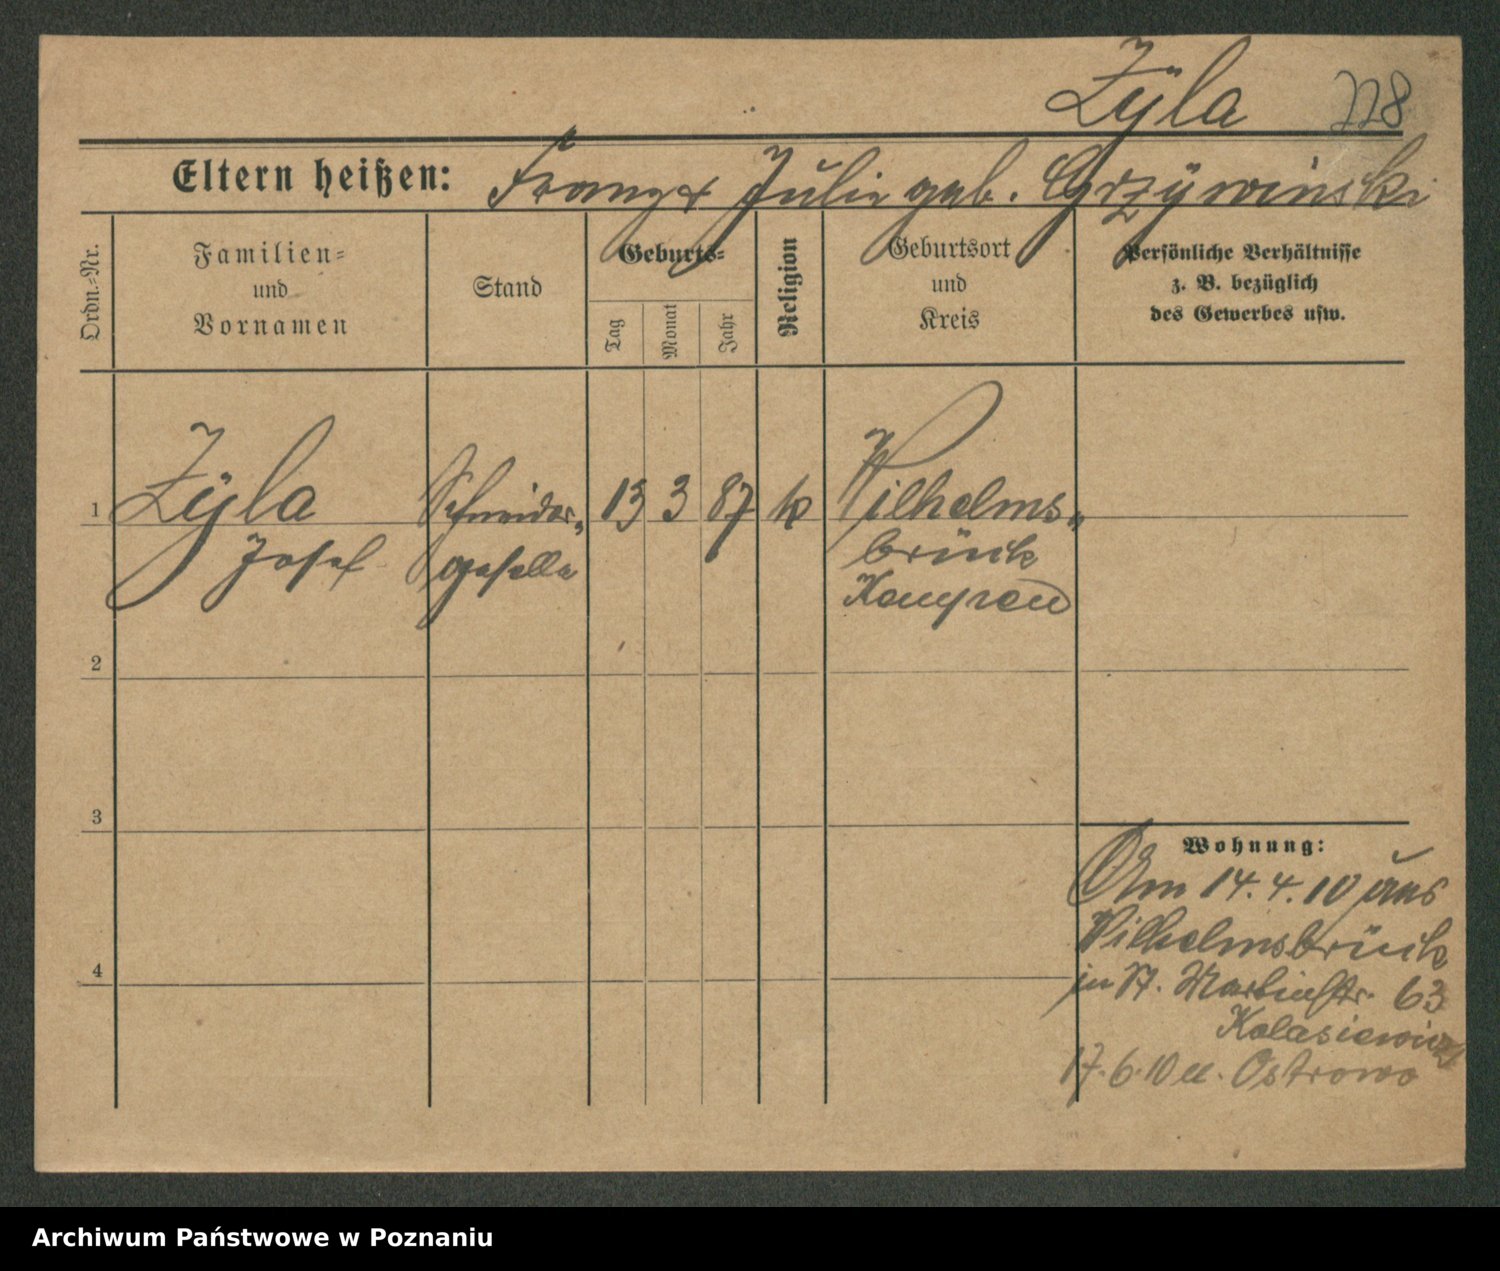 Zÿla 728
Eltern heißen: Franz & Julie geb. Grzÿwinski
Ordn.-Nr.
Familien-
und
Vornamen
Stand
Geburts-
Tag
Monat
Jahr
Religion
Geburtsort
und
Kreis
Persönliche Verhältnisse
z. B. bezüglich
des Gewerbes usw.
1 Zÿla Schneider- 13 3 87 k Wilhelms-
Josef geselle brück
Kempen
2
3
4
Wohnung:
Am 14.4.10 aus
Wilhelmsbrück
in St. Martinstr. 63
Kolasiewicz
17.6.10 Ostrowo
Archiwum Państwowe w Poznaniu